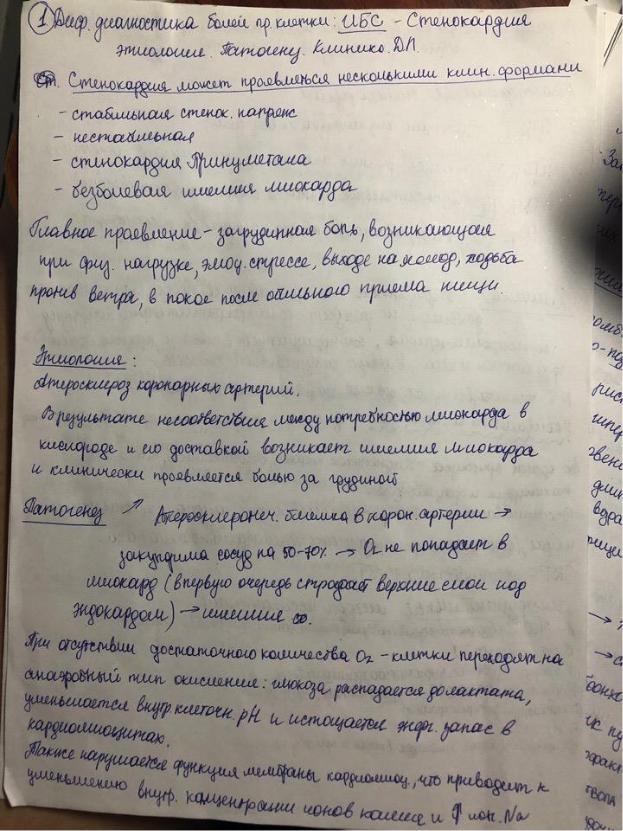 ① Диф. диагностика болей гр клетки: ИБС - Стенокардия
этиология. Патогенез. Клиника. ДП.
Стенокардия может проявляться несколькими клин. формами
- стабильная стенок. напряж
- нестабильная
- стинокардия Принцметала
- безболевая ишемия миокарда
Главное проявление - загрудинная боль, возникающая
при физ. нагрузке, эмоц. стрессе, выходе на холод, ходьба
против ветра, в покое после обильного приема пищи.
Этиология:
Атеросклероз коронарных артерий.
В результате несоответствия между потребностью миокарда в
кислороде и его доставкой возникает ишемия миокарда
и клинически проявляется болью за грудиной
Патогенез ↗ Атеросклеротич. бляшка в корон. артерии →
закупорила сосуд на 50-70% → O₂ не попадает в
миокард (в первую очередь страдает верхние слои под
эндокардом) → ишемия
При отсутствии достаточного количества O₂ - клетки переходят на
анаэробный тип окисления: глюкоза распадается до лактата,
уменьшается внутриклеточн. pH и истощается энерг. запас в
кардиомиоцитах.
Также нарушается функция мембраны кардиомиоц, что приводит к
уменьшению внутр. концентрации ионов калия и ↑ ион. Na